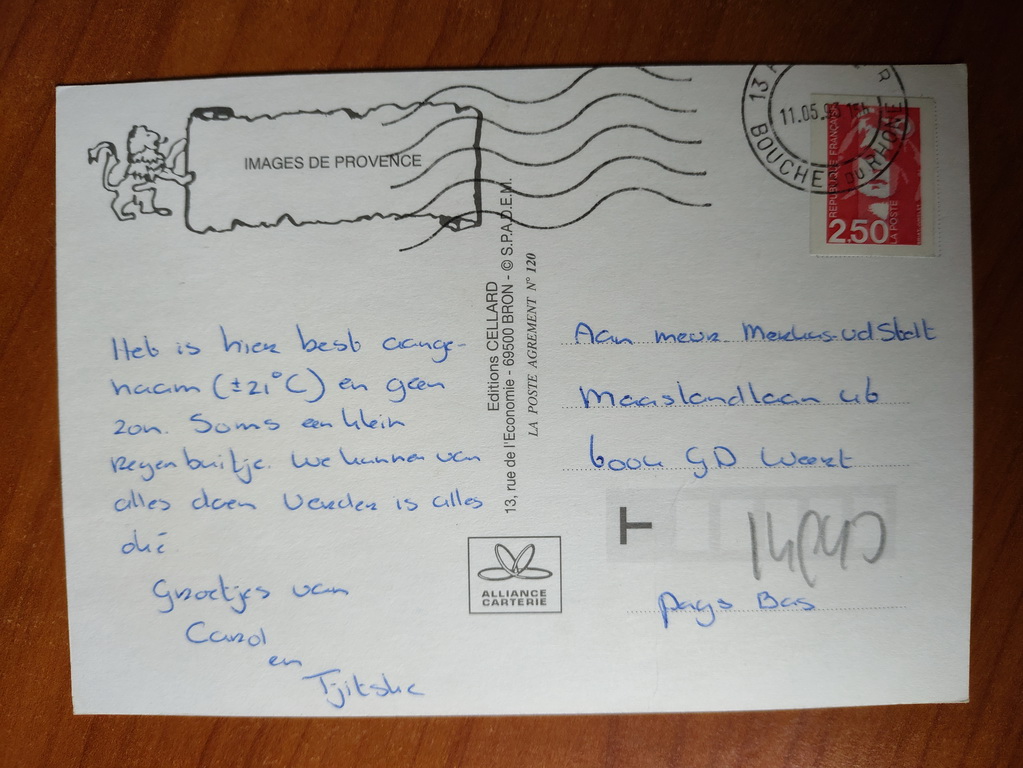 IMAGES DE PROVENCE
13
11.05.9
BOUCHES DU RHONE
REPUBLIQUE FRANÇAISE
LA POSTE
2.50
Het is hier best aange-
naam (±21°C) en geen
zon. Soms een klein
regenbuitje. We kunnen van
alles doen Verder is alles
oké
Groetjes van
Carol
en
Tjitske
Editions CELLARD
13, rue de l'Economie - 69500 BRON - © S.P.A.D.E.M.
LA POSTE AGREMENT N° 120
ALLIANCE
CARTERIE
Aan mevr. Merkus-vd Stelt
Maaslandlaan 46
6004 GD Weert
T
Pays Bas